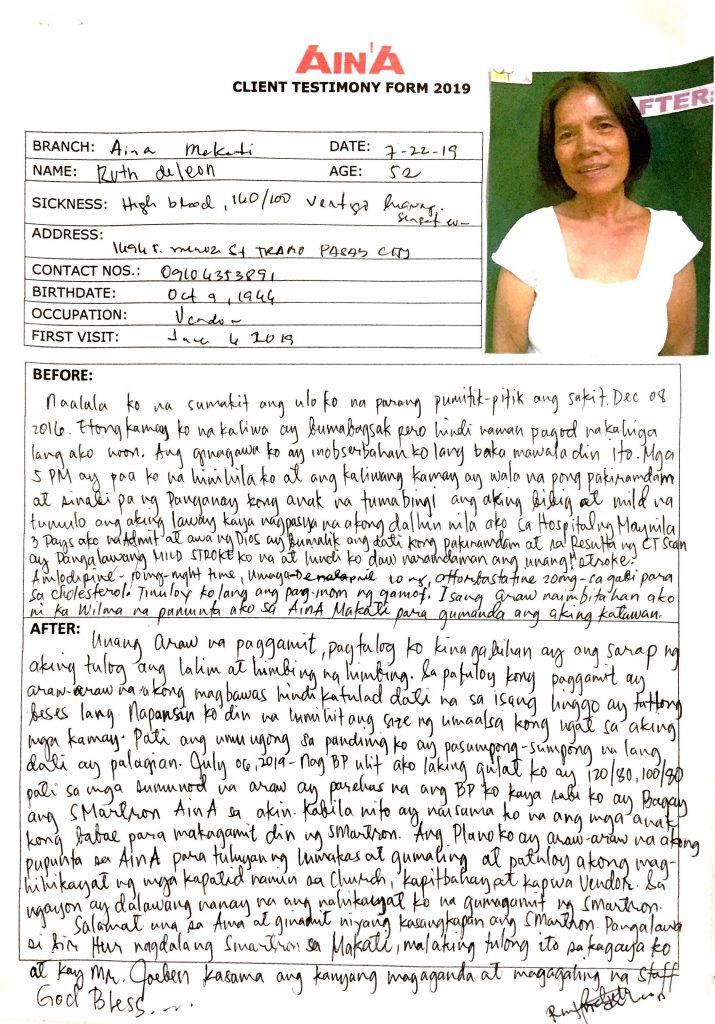 AINA
CLIENT TESTIMONY FORM 2019
AFTER:
BRANCH: Aina Makati DATE: 7-22-19
NAME: Ruth deleon AGE: 52
SICKNESS: High blood, 140/100 Vertigo
ADDRESS:
St TRAMO PASAY CITY
CONTACT NOS.: 09104353891
BIRTHDATE: Oct 9, 1966
OCCUPATION: Vendor
FIRST VISIT: June 6 2019
BEFORE:
Naalala ko na sumakit ang ulo ko na parang pumitik-pitik ang sakit. Dec 08
2016. Etong kamay ko na kaliwa ay bumabagsak pero hindi naman pagod nakahiga
lang ako noon. Ang ginagawa ko ay inobserbahan ko lang baka mawala din ito. Mga
5 PM ay paa ko na hinihila ko at ang kaliwang kamay ay wala na pong pakiramdam
at sinabi pa ng Panganay kong anak na tumabingi ang aking bibig at mild na
tumulo ang aking laway kaya nagpasya na akong dalhin nila ako sa Hospital ng Maynila
3 Days ako na Admit at awa ng Dios ay bumalik ang dati kong pakiramdam at sa Resulta ng CT Scan
ay Pangalawang MILD STROKE ko na at hindi ko daw naramdaman ang unang stroke.
Amlodipine - 10mg-night time, umaga- 10 mg, Attorbastatine 20mg - sa gabi para
sa cholesterol. Tinuloy ko lang ang pag-inom ng gamot. Isang araw naimbitahan ako
ni ka Wilma na pumunta ako sa AinA Makati para gumanda ang aking katawan.
AFTER:
Unang araw na paggamit, pagtulog ko kinagabihan ay ang sarap ng
aking tulog ang lalim at himbing na himbing. Sa patuloy kong paggamit ay
araw-araw na akong magbawas hindi katulad dati na sa isang linggo ay tatlong
beses lang. Napansin ko din na lumiliit ang size ng umaalsa kong ugat sa aking
mga kamay. Pati ang umuugong sa pandinig ko ay pasumpong-sumpong na lang
dati ay palagian. July 06, 2019- Nag BP ulit ako laking gulat ko ay 120/80, 100/80
pati sa mga sumunod na araw ay parehas na ang BP ko kaya sabi ko ay Bagay
ang SMartron AinA sa akin. Kabila nito ay naisama ko na ang mga anak
kong babae para makagamit din ng SMartron. Ang Plano ko ay araw-araw na akong
pupunta sa AinA para tuluyan ng lumakas at gumaling at patuloy akong mag-
hihikayat ng mga kapatid namin sa Church, kapitbahay at kapwa Vendor. Sa
ngayon ay dalawang nanay na ang nahikayat ko na gumagamit ng SMartron.
Salamat una sa Ama at ginamit niyang kasangkapan ang SMartron. Pangalawa
si Sir Hur nagdalang Smartron sa Makati, malaking tulong ito sa kagaya ko
at kay Mr. Joeben kasama ang kanyang magaganda at magagaling na Staff
God Bless....